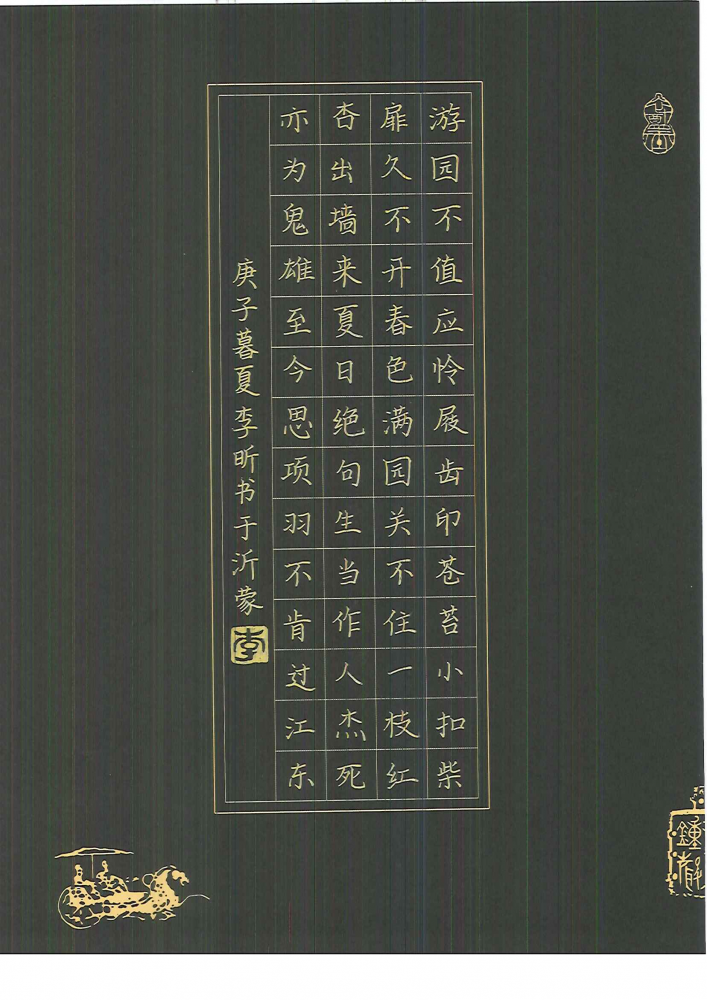 游园不值应怜屐齿印苍苔小扣柴
扉久不开春色满园关不住一枝红
杏出墙来夏日绝句生当作人杰死
亦为鬼雄至今思项羽不肯过江东
庚子暮夏李昕书于沂蒙
李